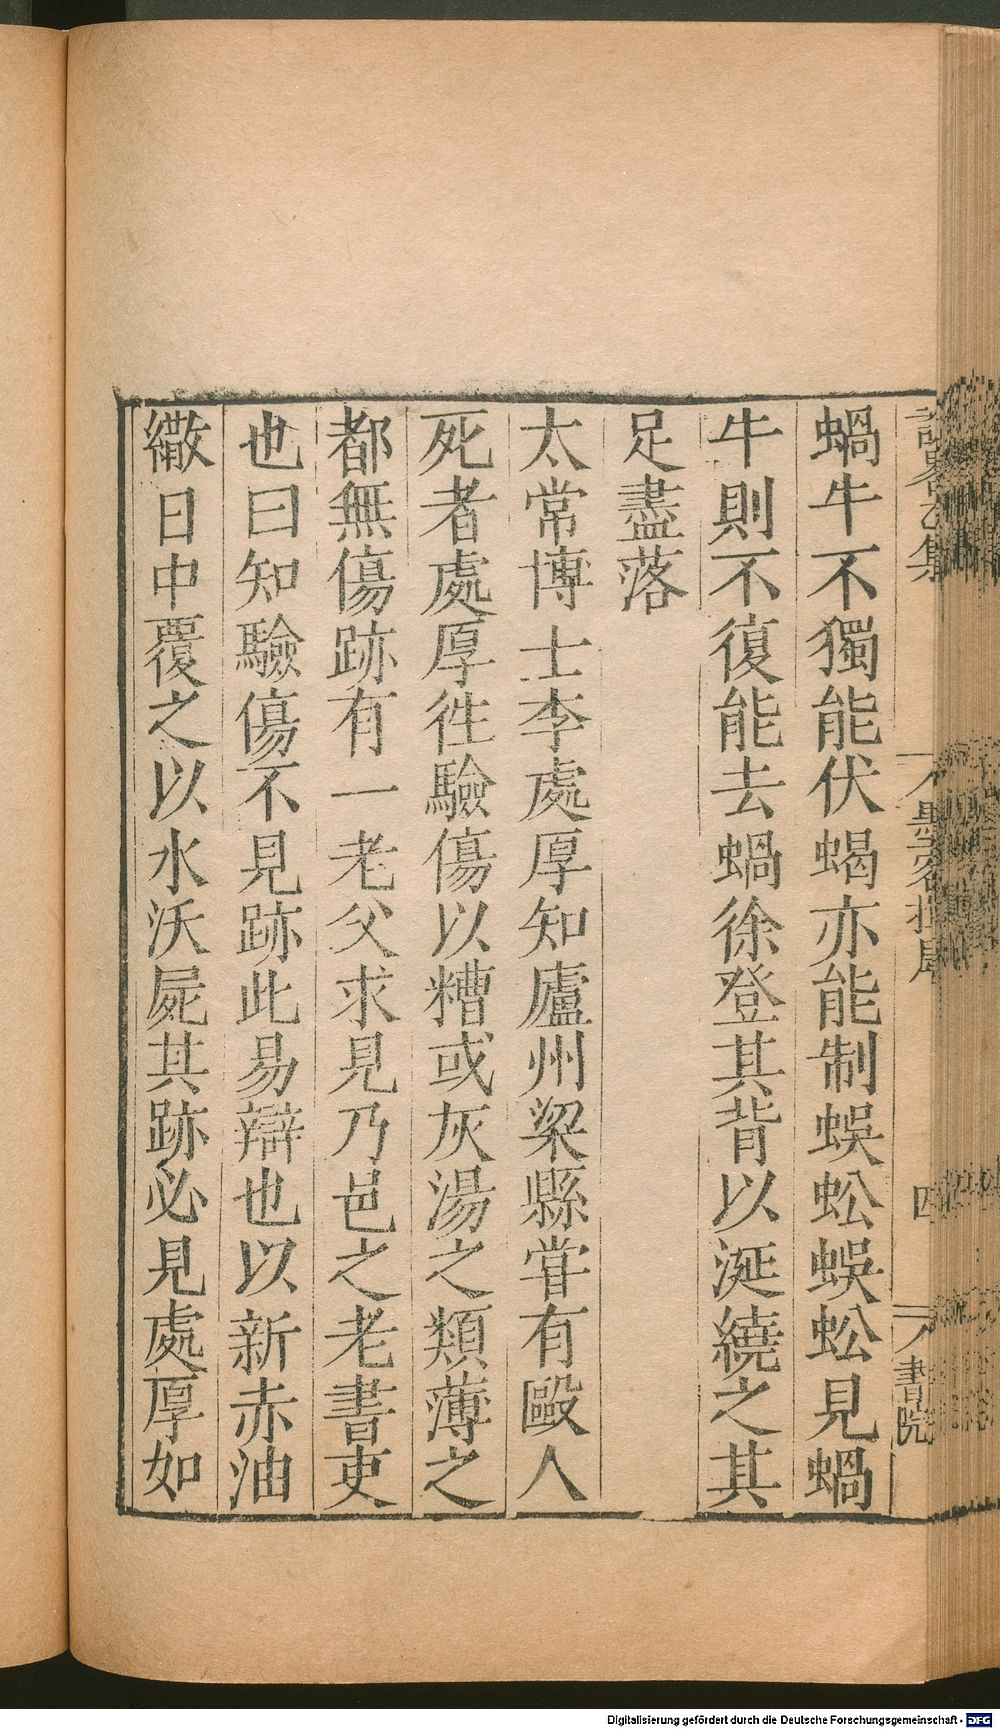 蝸牛不獨能伏蝎亦能制蜈蚣蜈蚣見蝸
牛則不復能去蝸徐登其背以涎繞之其
足盡落
太常博士李處厚知廬州梁縣甞有毆人
死者處厚徃驗傷以糟或灰湯之類薄之
都無傷跡有一老父求見乃邑之老書吏
也曰知驗傷不見跡此易辯也以新赤油
繖日中覆之以水沃屍其跡必見處厚如
四
書院
Digitalisierung gefördert durch die Deutsche Forschungsgemeinschaft - DFG